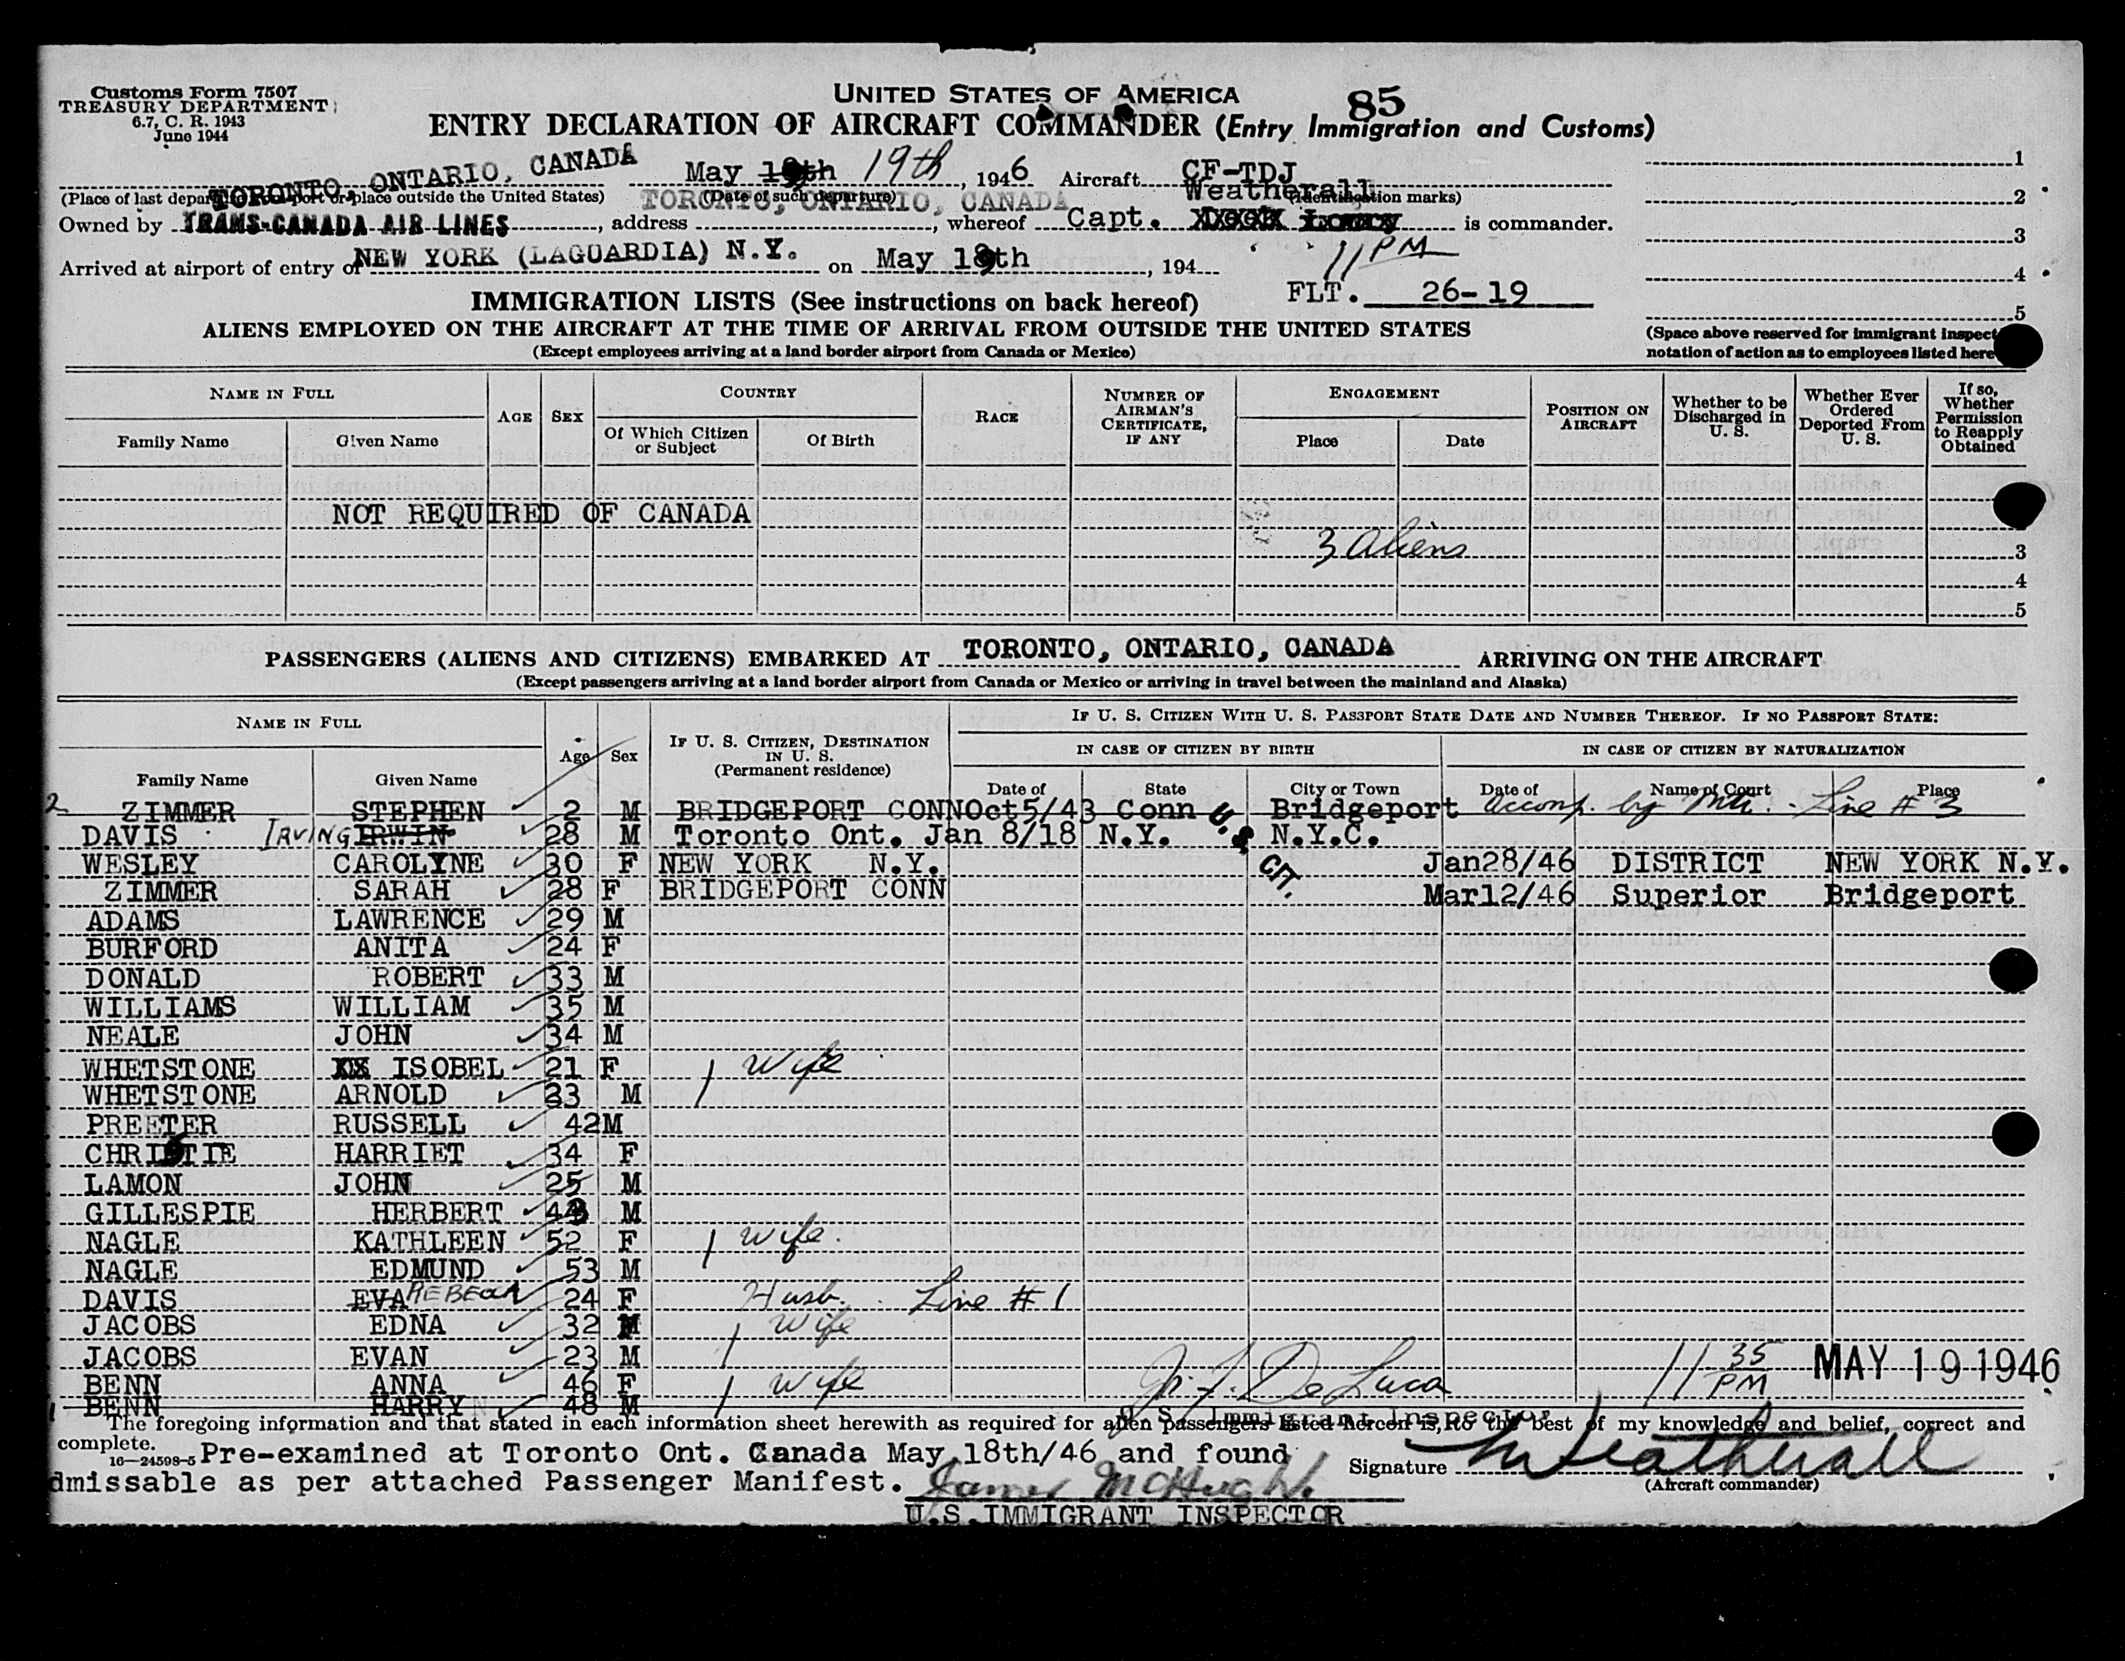 Customs Form 7507
TREASURY DEPARTMENT
6.7, C. R. 1943
June 1944
UNITED STATES OF AMERICA
85
ENTRY DECLARATION OF AIRCRAFT COMMANDER (Entry Immigration and Customs)
TORONTO, ONTARIO, CANADA May 19th 19th, 1946 Aircraft CF-TDJ
(Place of last departure port or place outside the United States) (Date of such departure) (Identification marks)
TORONTO, ONTARIO, CANADA
Weatherall
Owned by TRANS-CANADA AIR LINES, address, whereof Capt. is commander.
Arrived at airport of entry of NEW YORK (LAGUARDIA) N.Y. on May 19th, 194 11 PM
IMMIGRATION LISTS (See instructions on back hereof) FLT. 26-19
1
2
3
4
5
(Space above reserved for immigrant inspect
notation of action as to employees listed here
ALIENS EMPLOYED ON THE AIRCRAFT AT THE TIME OF ARRIVAL FROM OUTSIDE THE UNITED STATES
(Except employees arriving at a land border airport from Canada or Mexico)
NAME IN FULL AGE SEX COUNTRY RACE NUMBER OF AIRMAN'S CERTIFICATE, IF ANY ENGAGEMENT POSITION ON AIRCRAFT Whether to be Discharged in U. S. Whether Ever Ordered Deported From U. S. If so, Whether Permission to Reapply Obtained
Family Name Given Name Of Which Citizen or Subject Of Birth Place Date
NOT REQUIRED OF CANADA
3 Aliens 3
4
5
PASSENGERS (ALIENS AND CITIZENS) EMBARKED AT TORONTO, ONTARIO, CANADA ARRIVING ON THE AIRCRAFT
(Except passengers arriving at a land border airport from Canada or Mexico or arriving in travel between the mainland and Alaska)
NAME IN FULL Age Sex IF U. S. CITIZEN, DESTINATION IN U. S. (Permanent residence) IF U. S. CITIZEN WITH U. S. PASSPORT STATE DATE AND NUMBER THEREOF. IF NO PASSPORT STATE:
IN CASE OF CITIZEN BY BIRTH IN CASE OF CITIZEN BY NATURALIZATION
Family Name Given Name Date of State City or Town Date of Name of Court Place
2 ZIMMER STEPHEN 2 M BRIDGEPORT CONN Oct5/43 Conn Bridgeport accomp. by Mo. - Line # 3
DAVIS IRVING IRWIN 28 M Toronto Ont. Jan 8/18 N.Y. N.Y.C.
U.S. CIT.
WESLEY CAROLYNE 30 F NEW YORK N.Y. Jan28/46 DISTRICT NEW YORK N.Y.
ZIMMER SARAH 28 F BRIDGEPORT CONN Mar12/46 Superior Bridgeport
ADAMS LAWRENCE 29 M
BURFORD ANITA 24 F
DONALD ROBERT 33 M
WILLIAMS WILLIAM 35 M
NEALE JOHN 34 M
WHETSTONE XX ISOBEL 21 F Wife
WHETSTONE ARNOLD 23 M
PREETER RUSSELL 42 M
CHRISTIE HARRIET 34 F
LAMON JOHN 25 M
GILLESPIE HERBERT 43 M
NAGLE KATHLEEN 52 F Wife
NAGLE EDMUND 53 M
DAVIS EVA REBECCA 24 F Husb. Line # 1
JACOBS EDNA 32 F Wife
JACOBS EVAN 23 M
BENN ANNA 46 F Wife
J. F. De Luca 11 35 PM MAY 19 1946
1 BENN HARRY 48 M
U.S. Immigrant Inspector
The foregoing information and that stated in each information sheet herewith as required for alien passengers listed hereon is, to the best of my knowledge and belief, correct and
complete.
16—24598-5 Pre-examined at Toronto Ont. Canada May 18th/46 and found
Signature Weatherall
(Aircraft commander)
dmissable as per attached Passenger Manifest. James McHugh
U.S. IMMIGRANT INSPECTOR